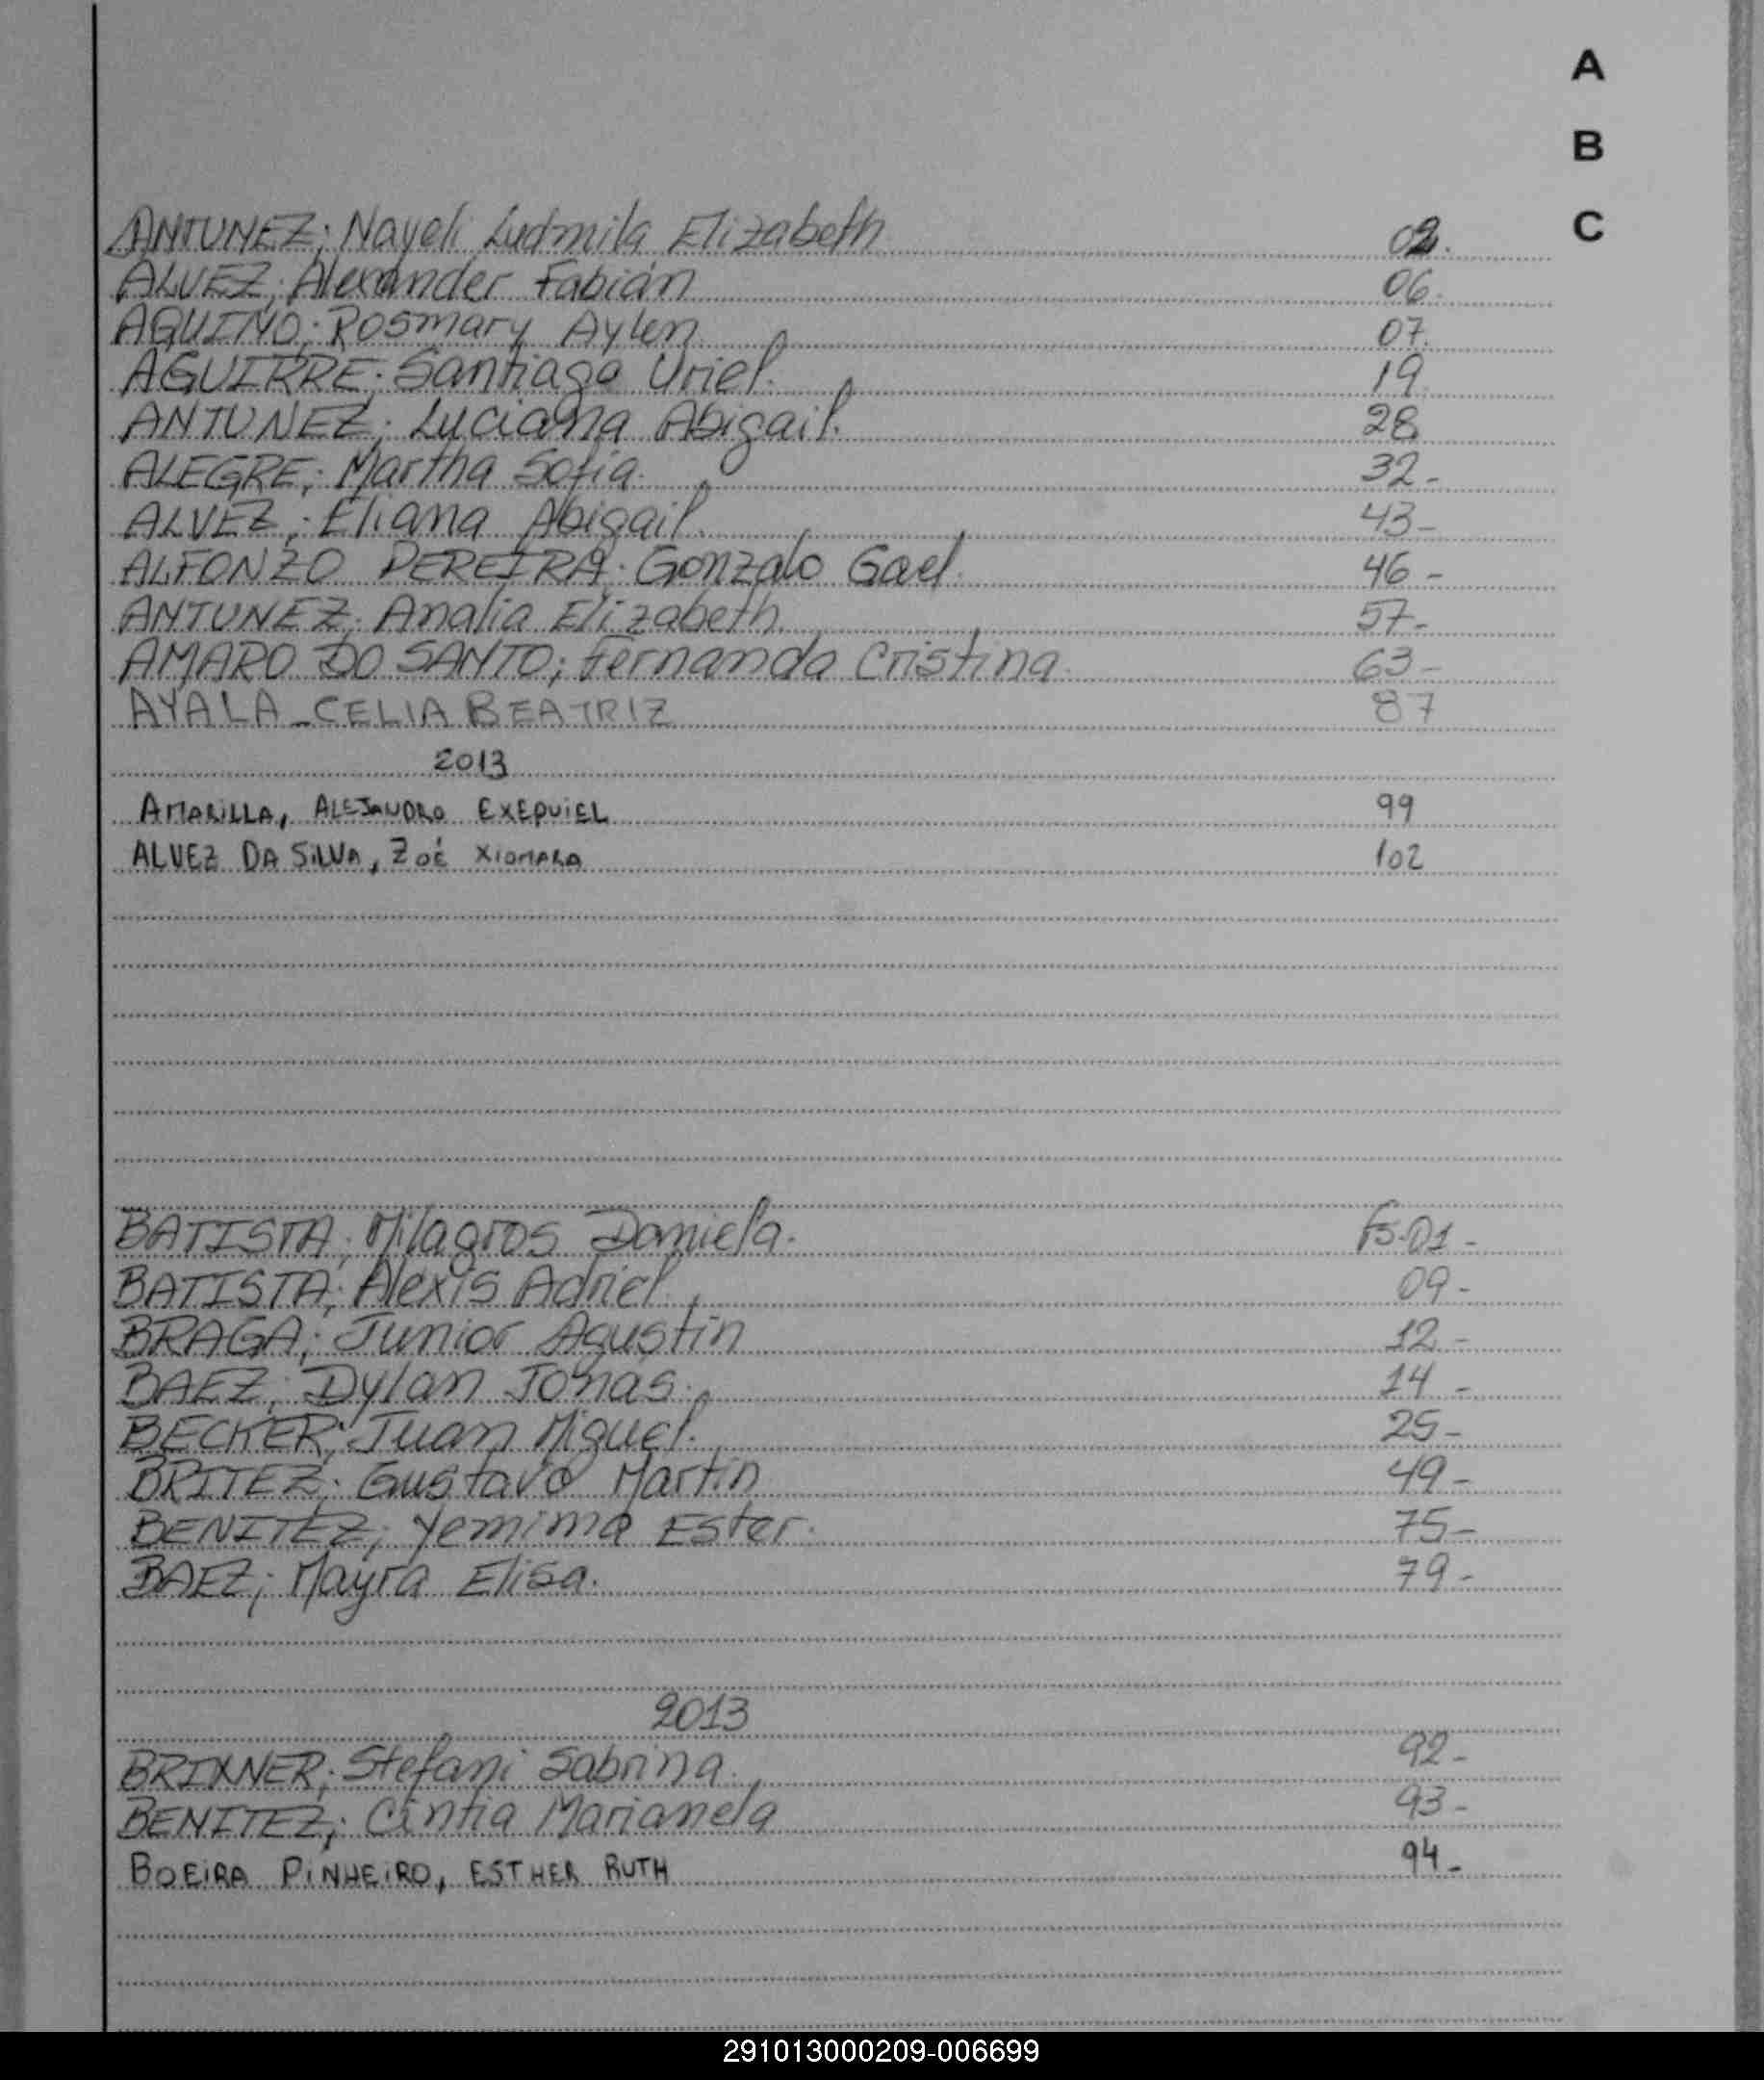 A
B
C
ANTUNEZ; Nayeli Ludmila Elizabeth 02.
ALVEZ; Alexander Fabián 06.
AQUINO; Rosmary Aylen 07.
AGUIRRE; Santiago Uriel. 19.
ANTUNEZ; Luciana Abigail. 28
ALEGRE; Martha Sofia. 32-
ALVEZ; Eliana Abigail. 43-
ALFONZO PEREIRA; Gonzalo Gael. 46-
ANTUNEZ; Analia Elizabeth. 57-
AMARO DO SANTO; Fernanda Cristina. 63-
AYALA_CELIA BEATRIZ 87
2013
AMARILLA, ALEJANDRO EXEQUIEL 99
ALVEZ DA SILVA, ZOÉ XIOMARA 102
BATISTA; Milagros Daniela. Fs.01-
BATISTA; Alexis Adriel. 09-
BRAGA; Junior Agustín 12-
BAEZ; Dylan Jonas. 14-
BECKER; Juan Miguel. 25-
BRITEZ; Gustavo Martín 49-
BENITEZ; Yemima Ester. 75-
BAEZ; Mayra Elisa. 79-
2013
BRIXNER; Stefani Sabrina. 92-
BENITEZ; Cíntia Marianela 93-
BOEIRA PINHEIRO, ESTHER RUTH 94-
291013000209-006699